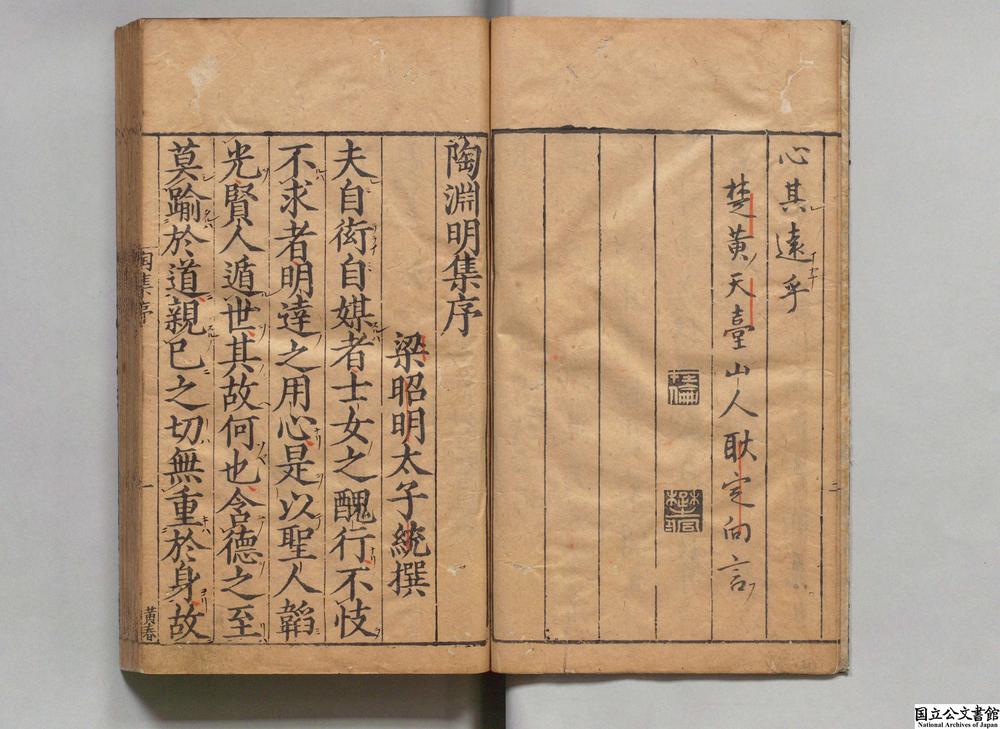 心其遠乎
楚黄天臺山人耿定向言
陶淵明集序
梁昭明太子統撰
夫自衒自媒者士女之醜行不忮
不求者明達之用心是以聖人韜
光賢人遁世其故何也含德之至
莫踰於道親已之切無重於身故
陶集序
一
黄春
二
国立公文書館
National Archives of Japan